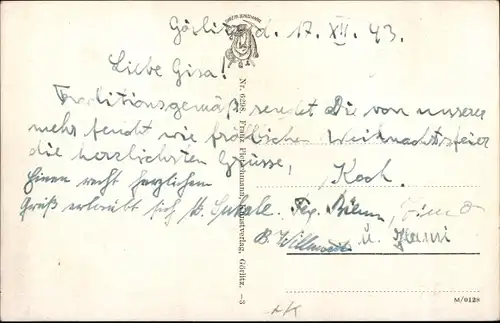 Görlitz d. 17. XII. 43.
Liebe Gisa!
Traditionsgemäß sendet Die von unserer
mehr feucht wie fröhlichen Weihnachtsfeier
die herzlichsten Grüsse,
Koch.
Einen recht herzlichen
Gruß erlaubt sich
u.
Nr. 6298 Franz Fleischmann, Kunstverlag, Görlitz. -3
M/0128